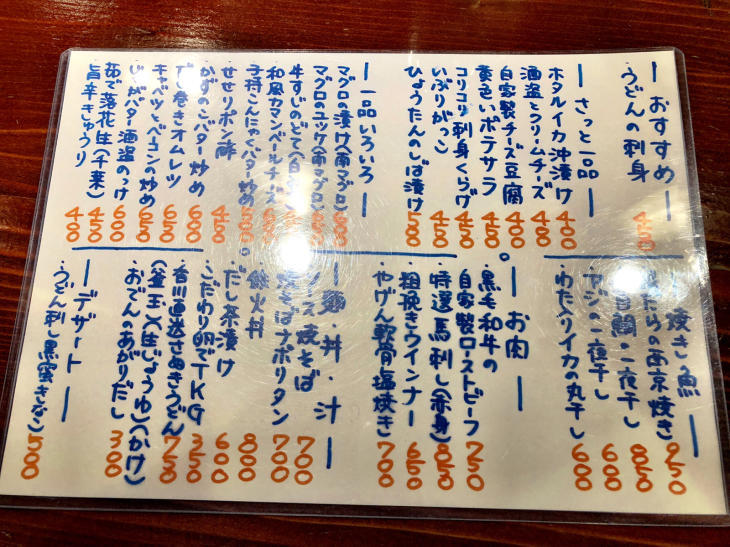 おすすめ
うどんの刺身 450
さっと一品
ホタルイカ沖漬け 400
酒盗とクリームチーズ 480
自家製チーズ豆腐 450
黄色いポテサラ 480
コリコリ刺身くらげ 450
いぶりがっこ 450
ひょうたんのしば漬け 500
一品いろいろ
マグロの漬け(南マグロ)
マグロのユッケ(南マグロ)
牛すじのどて
和風カマンベールチーズ
子持こんにゃくバター炒め
せせりポン酢 450
かずのこバター炒め 600
だし巻きオムレツ 650
キャベツとベーコンの炒め 650
じゃがバター酒盗のっけ 600
茹で落花生(千葉) 450
旨辛きゅうり 400
焼き魚
西京焼き 950
一夜干し 850
アジの一夜干し 600
・わた入りイカの丸干し 600
お肉
・黒毛和牛の
自家製ローストビーフ 950
・特選馬刺し(赤身) 850
・粗挽きウインナー 650
・やげん軟骨塩焼き 700
麺・丼・汁
焼そば 700
焼そばナポリタン 700
丼 800
・だし茶漬け 600
・こだわり卵でTKG 350
・香川直送さぬきうどん 750
(釜玉)(生じょうゆ)(かけ)
・おでんのあがりだし 300
デザート
・うどん刺し黒蜜きなこ 500